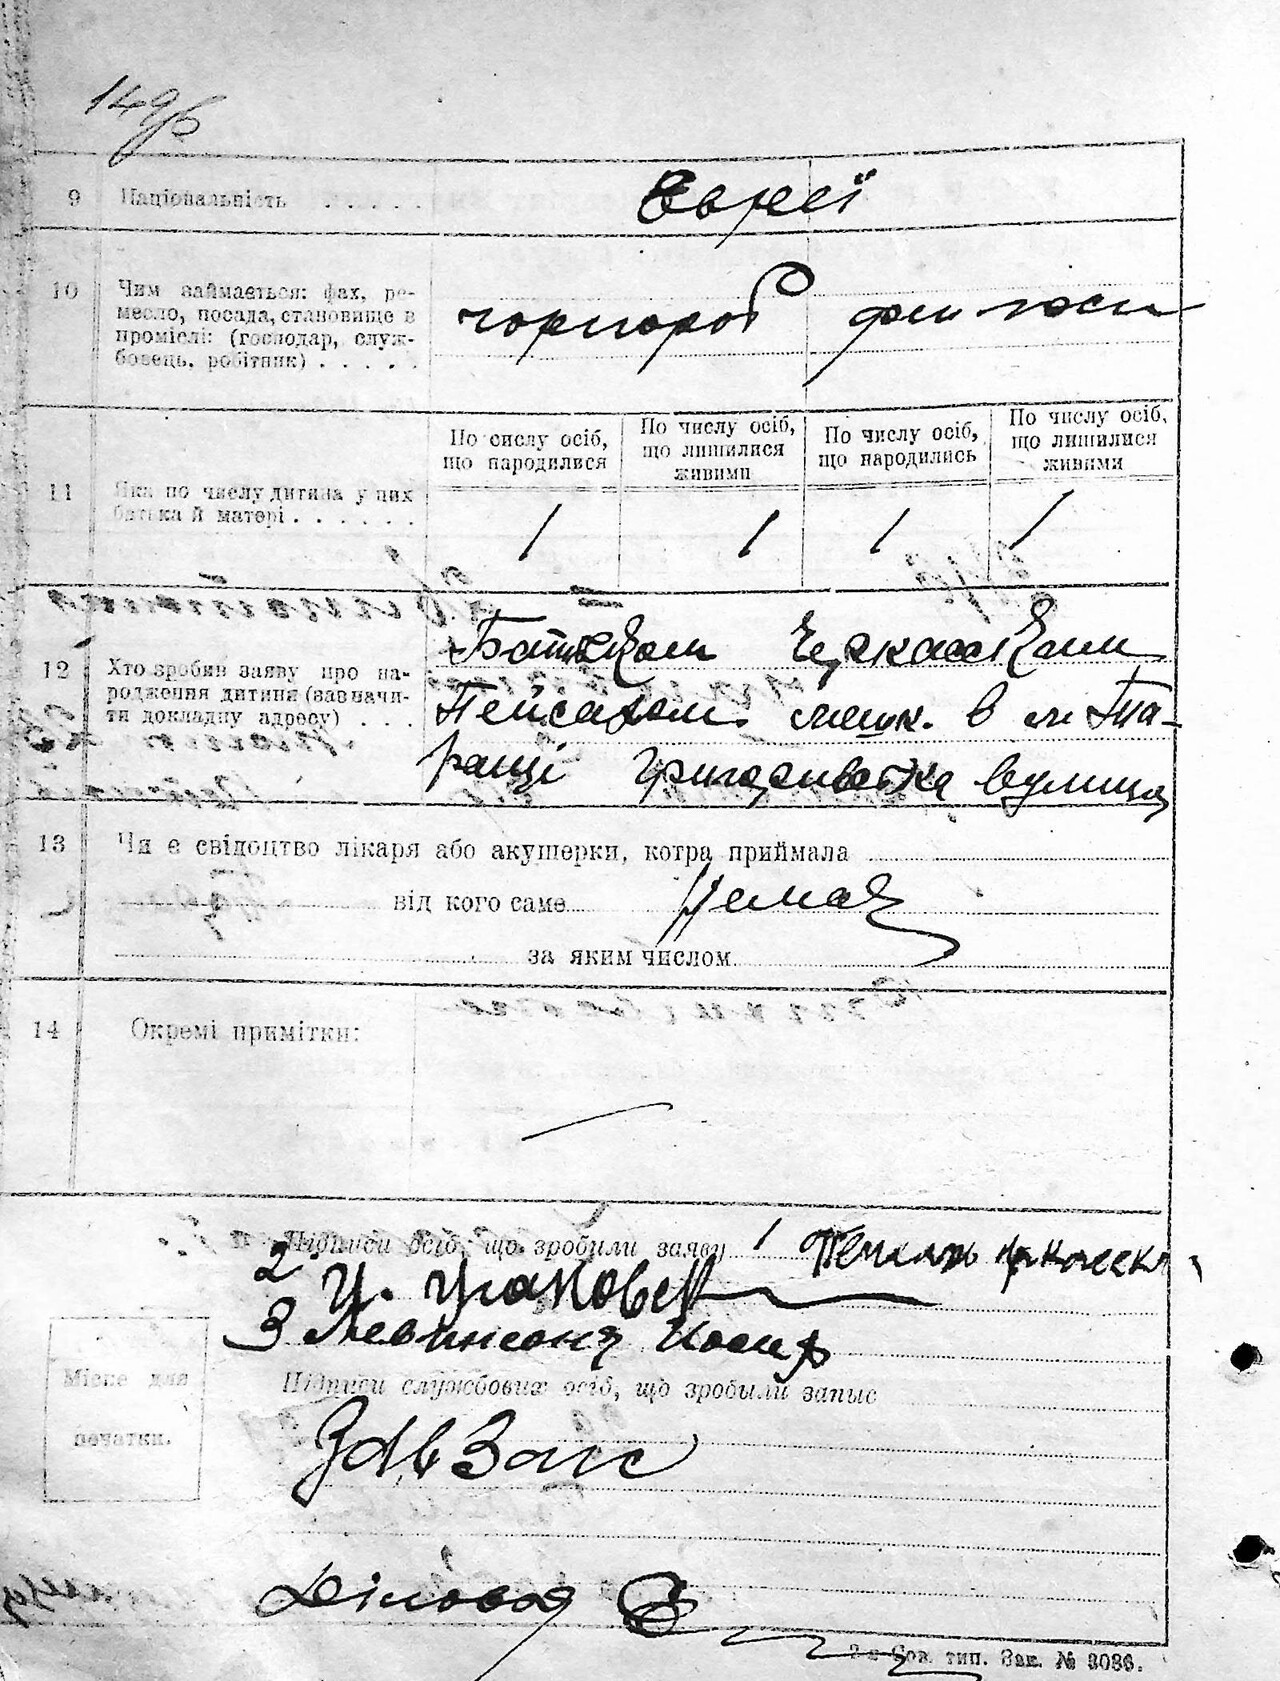 149
9 Національність . . . . . Євреї
10 Чим займається: фах, ре-
месло, посада, становище в
проміслі: (господар, служ-
бовець, робітник) . . . . .
11 Яка по числу дитина у них
батька й матері . . . . . .
По числу осіб, що народилися
По числу осіб, що лишилися живими
По числу осіб, що народились
По числу осіб, що лишилися живими
1 1 1 1
12 Хто зробив заяву про на-
родження дитини (зазначи-
ти докладну адресу) . . .
Батьком Черкасским
Пейсахом мешк. в м Та-
ращі вулиця
13 Чи є свідоцтво лікаря або акушерки, котра приймала
від кого саме Немає
за яким числом
14 Окремі примітки:
Підписи осіб, що зробили заяву 1
2.
3 Левинсонъ
Підписи службових осіб, що зробили запис
Місце для
печатки.
Зав Загс
Діловод
2-а Сов. тип. Зак. № 3086.